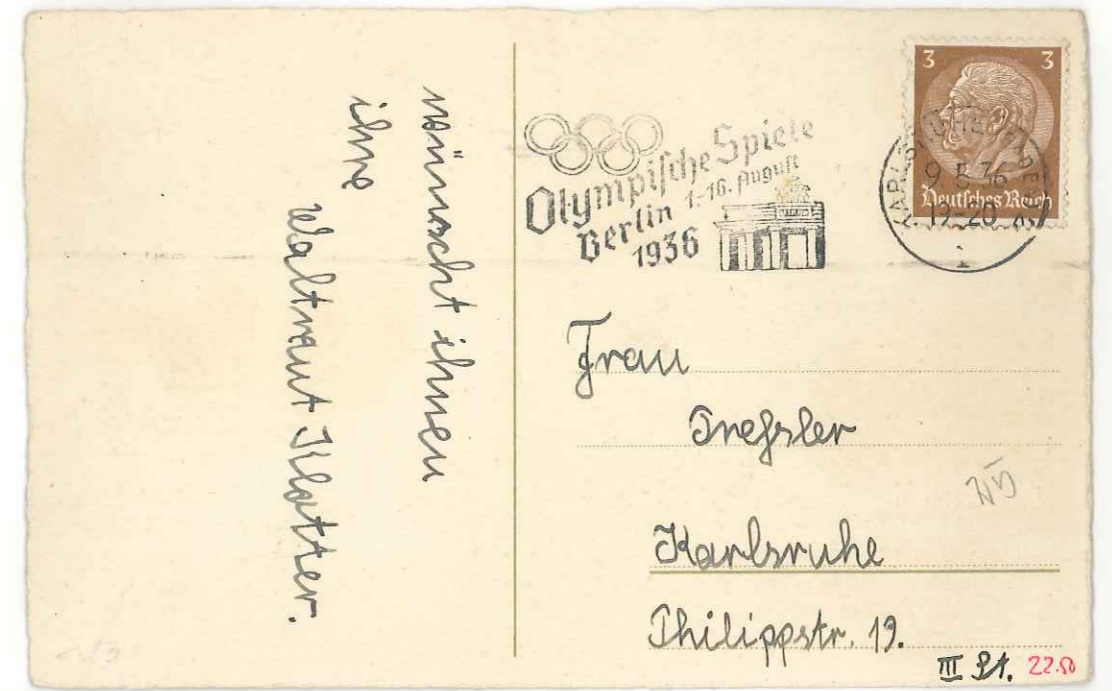 wünscht ihnen
ihre
Waltraut Klotter.
Olympische Spiele
Berlin 1.-16. August
1936
3 3
Deutsches Reich
KARLSRUHE (BADEN)
9.5.36
19-20
Frau
Karlsruhe
Philippstr. 19.
III St.
22.50